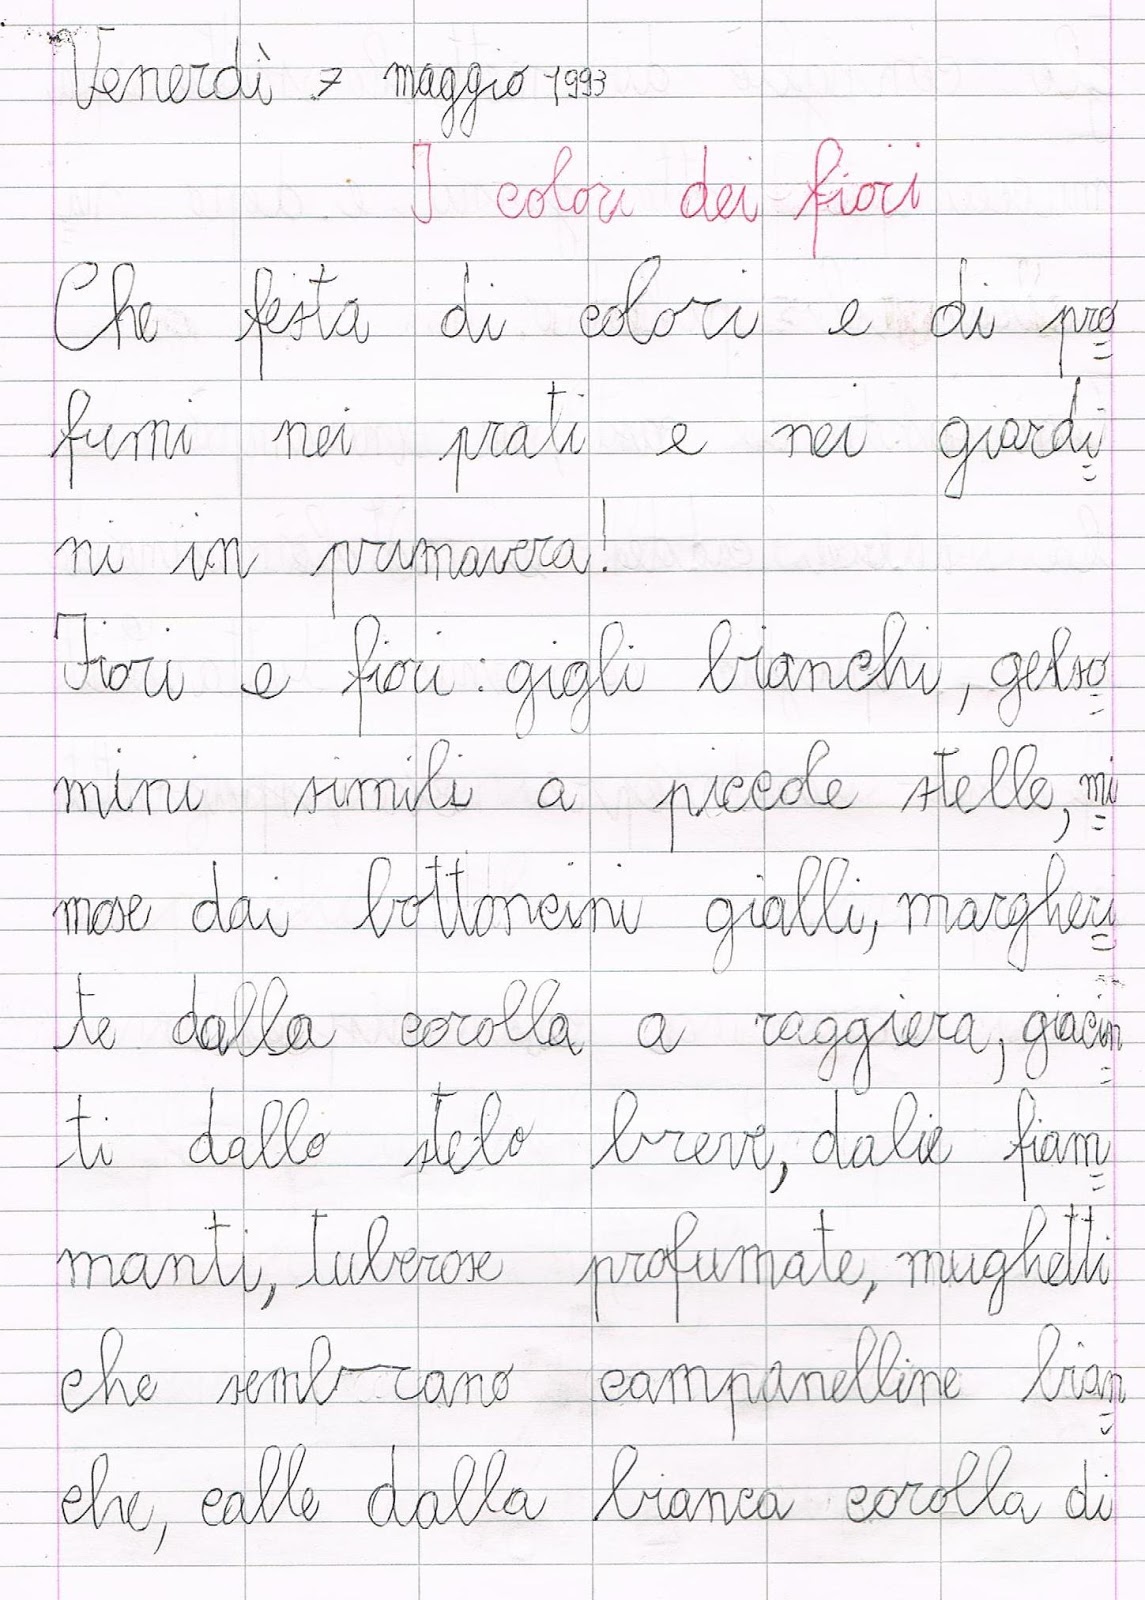 Venerdì 7 maggio 1993
I colori dei fiori
Che festa di colori e di pro=
fumi nei prati e nei giardi=
ni in primavera!
Fiori e fiori: gigli bianchi, gelso=
mini simili a piccole stelle, mi=
mose dai bottoncini gialli, margheri=
te dalla corolla a raggiera, giacin=
ti dallo stelo breve, dalie fiam=
manti, tuberose profumate, mughetti
che sembrano campanelline bian=
che, calle dalla bianca corolla di